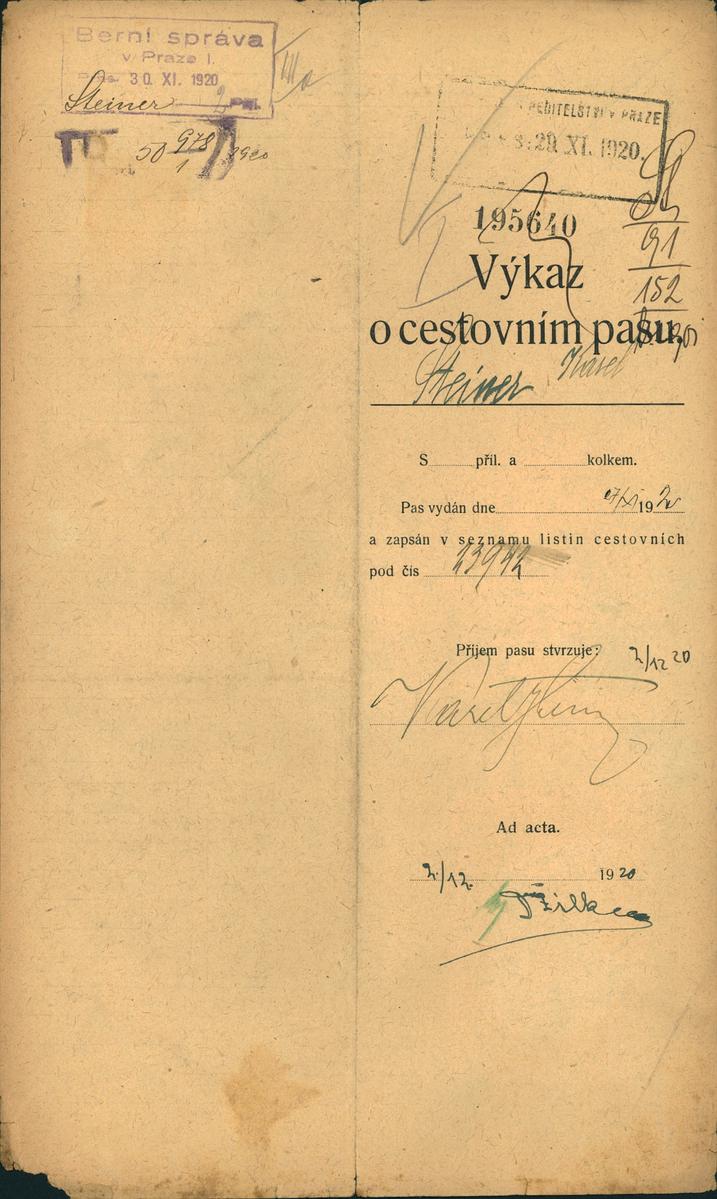 Berní správa
v Praze I.
30. XI. 1920
Steiner 2 Příl.
IIIa
50 978/1 1920
ŘEDITELSTVÍ V PRAZE
29. XI. 1920.
195640
91
152
Výkaz
o cestovním pasu.
Steiner Karel
S příl. a kolkem.
Pas vydán dne 1920
a zapsán v seznamu listin cestovních
pod čís 23942
Příjem pasu stvrzuje: 2/12 20
Karel Steiner
Ad acta.
2./12. 1920